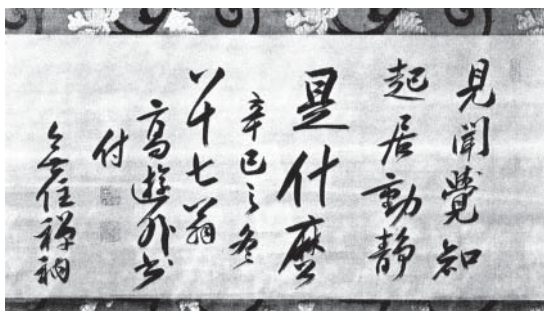 見聞覺知
起居動静
是什麼
辛巳之冬
八十七翁
高遊外書
付
無住禅衲